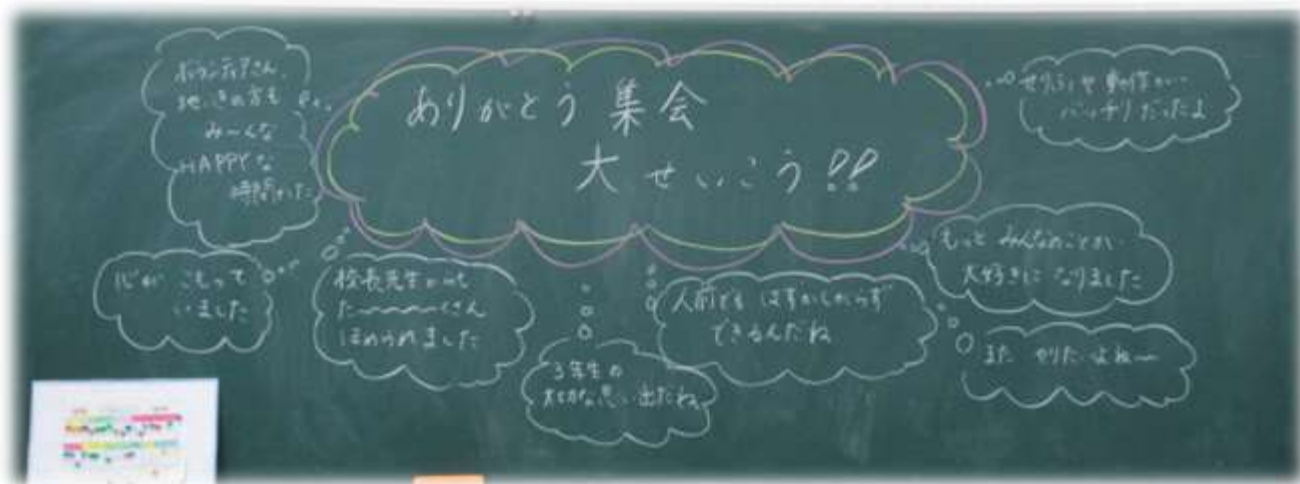 ありがとう集会
大せいこう!!
ボランティアさん、
地いきの方も
み〜んな
HAPPYな
時間だった
せりふや動作が…
バッチリだったよ
心がこもって
いました
校長先生からも
た〜〜〜〜くさん
ほめられました
3年生の
大切な思い出だね
人前でもはずかしがらず
できるんだね
もっとみんなのことが
大好きになりました
また やりたいよね〜